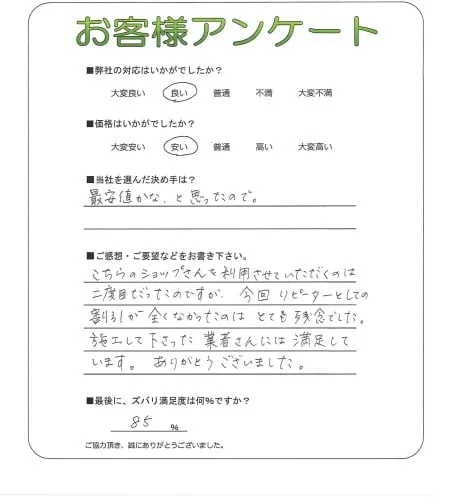 お客様アンケート
■弊社の対応はいかがでしたか？
大変良い 良い 普通 不満 大変不満
■価格はいかがでしたか？
大変安い 安い 普通 高い 大変高い
■当社を選んだ決め手は？
最安値かな、と思ったので。
■ご感想・ご要望などをお書き下さい。
こちらのショップさんを利用させていただくのは
二度目だったのですが、今回リピーターとしての
割引が全くなかったのはとても残念でした。
施工して下さった業者さんには満足して
います。ありがとうございました。
■最後に、ズバリ満足度は何％ですか？
85 ％
ご協力頂き、誠にありがとうございました。